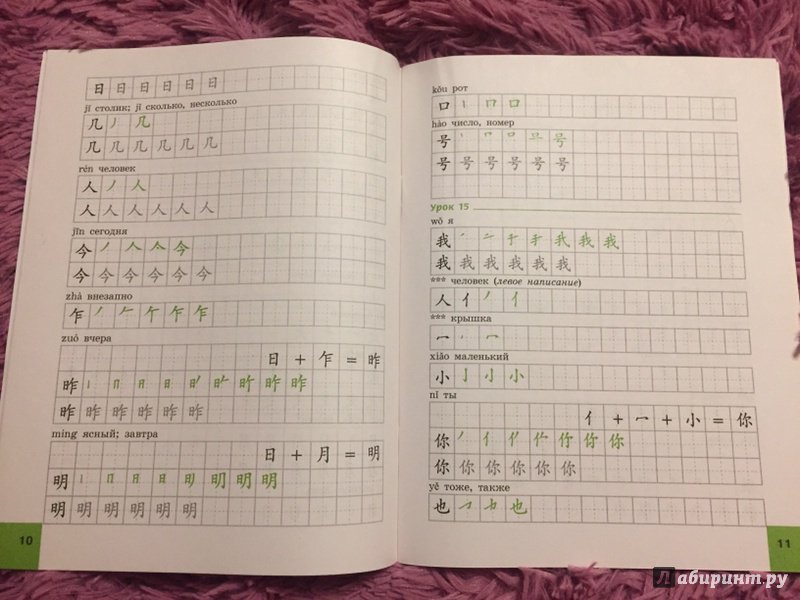 日 日 日 日 日 日
jī столик; jǐ сколько, несколько
几 丿 几
几 几 几 几 几 几
rén человек
人 丿 人
人 人 人 人 人 人
jīn сегодня
今 丿 人 亼 今
今 今 今 今 今 今
zhà внезапно
乍 丿 𠂉 乍
zuó вчера
日 + 乍 = 昨
昨 丨 冂 日 日 昨
昨 昨 昨 昨 昨 昨
míng ясный; завтра
日 + 月 = 明
明 丨 冂 日 日 明
明 明 明 明 明 明
10
kǒu рот
口 丨 冂 口
hào число, номер
号 丨 冂 口 号
号 号 号 号 号 号
Урок 15
wǒ я
我 丿 二 于 手 我 我
我 我 我 我 我 我
*** человек (левое написание)
人 亻 丿 亻
*** крышка
冖 丶 冖
xiǎo маленький
小 亅 小
nǐ ты
亻 + 冖 + 小 = 你
你 丿 亻 你
你 你 你 你 你 你
yě тоже, также
也 也
11
Лабиринт.ру